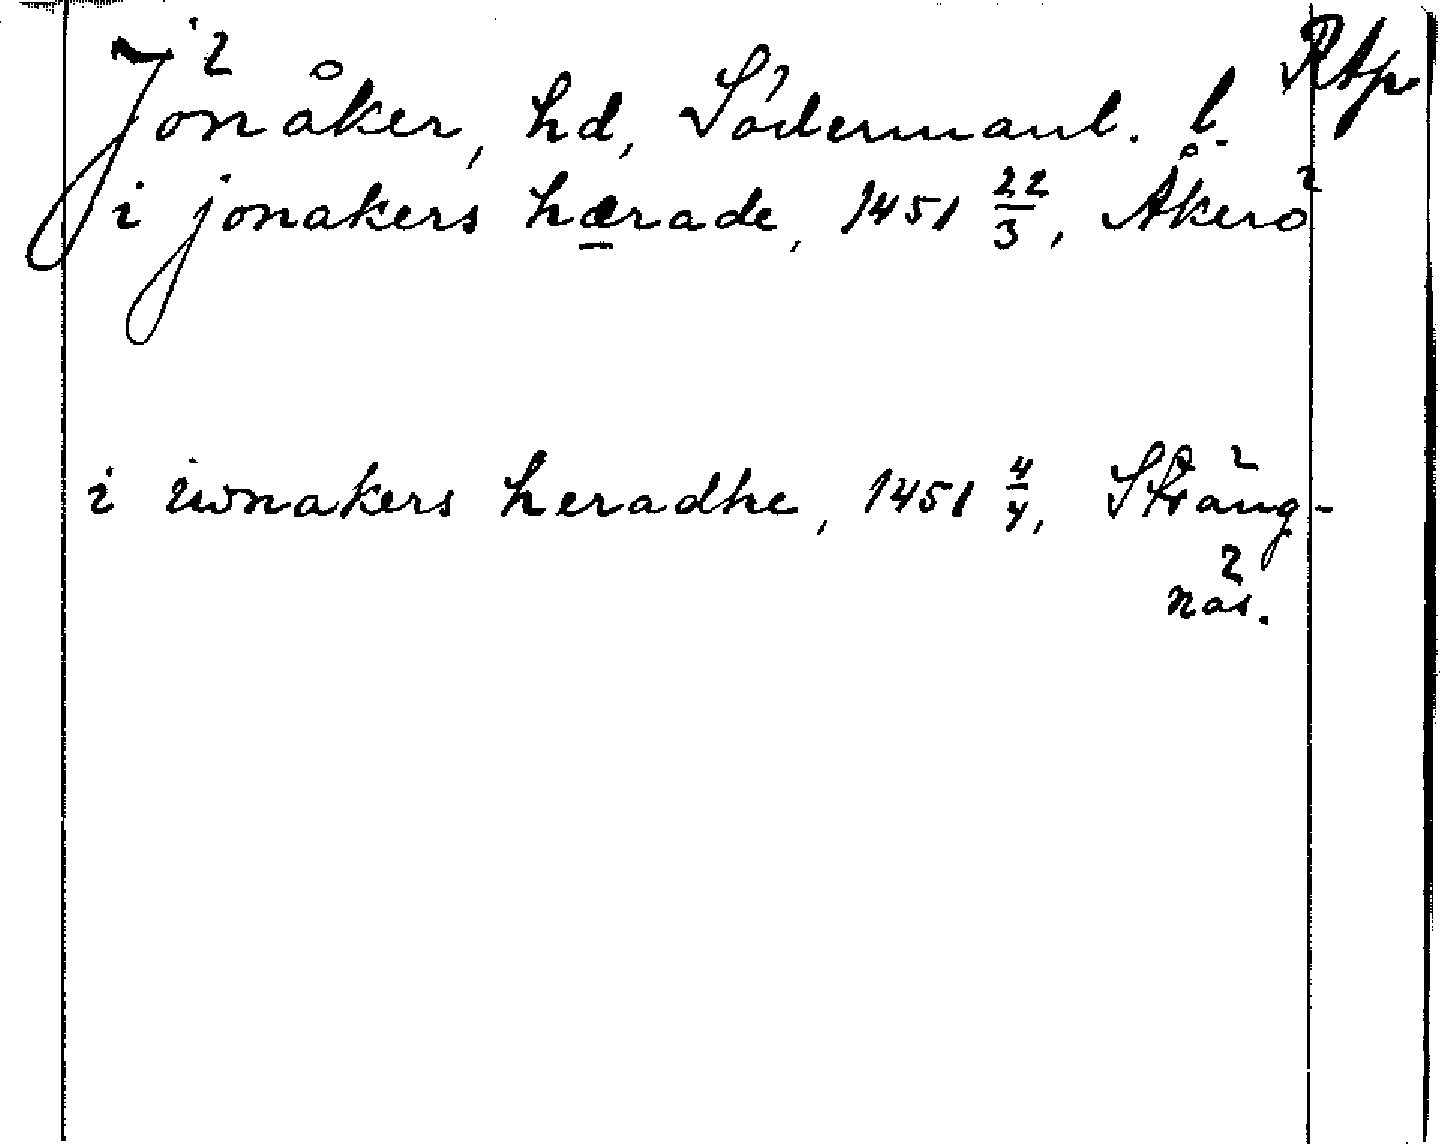 Jönåker, hd, Södermanl. l. Rtp
i jonakers hærade, 1451 22/3, Åkerö
i iwnakers heradhe, 1451 4/4, Sträng-
näs.